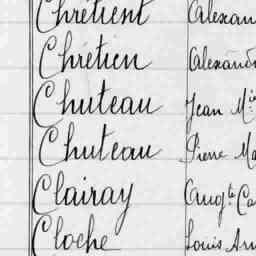 Chrétient Alexan
Chrétien Alexand
Chuteau Jean M
Chuteau Pierre Ma
Clairay Aug.te Ca
Cloche Louis Am